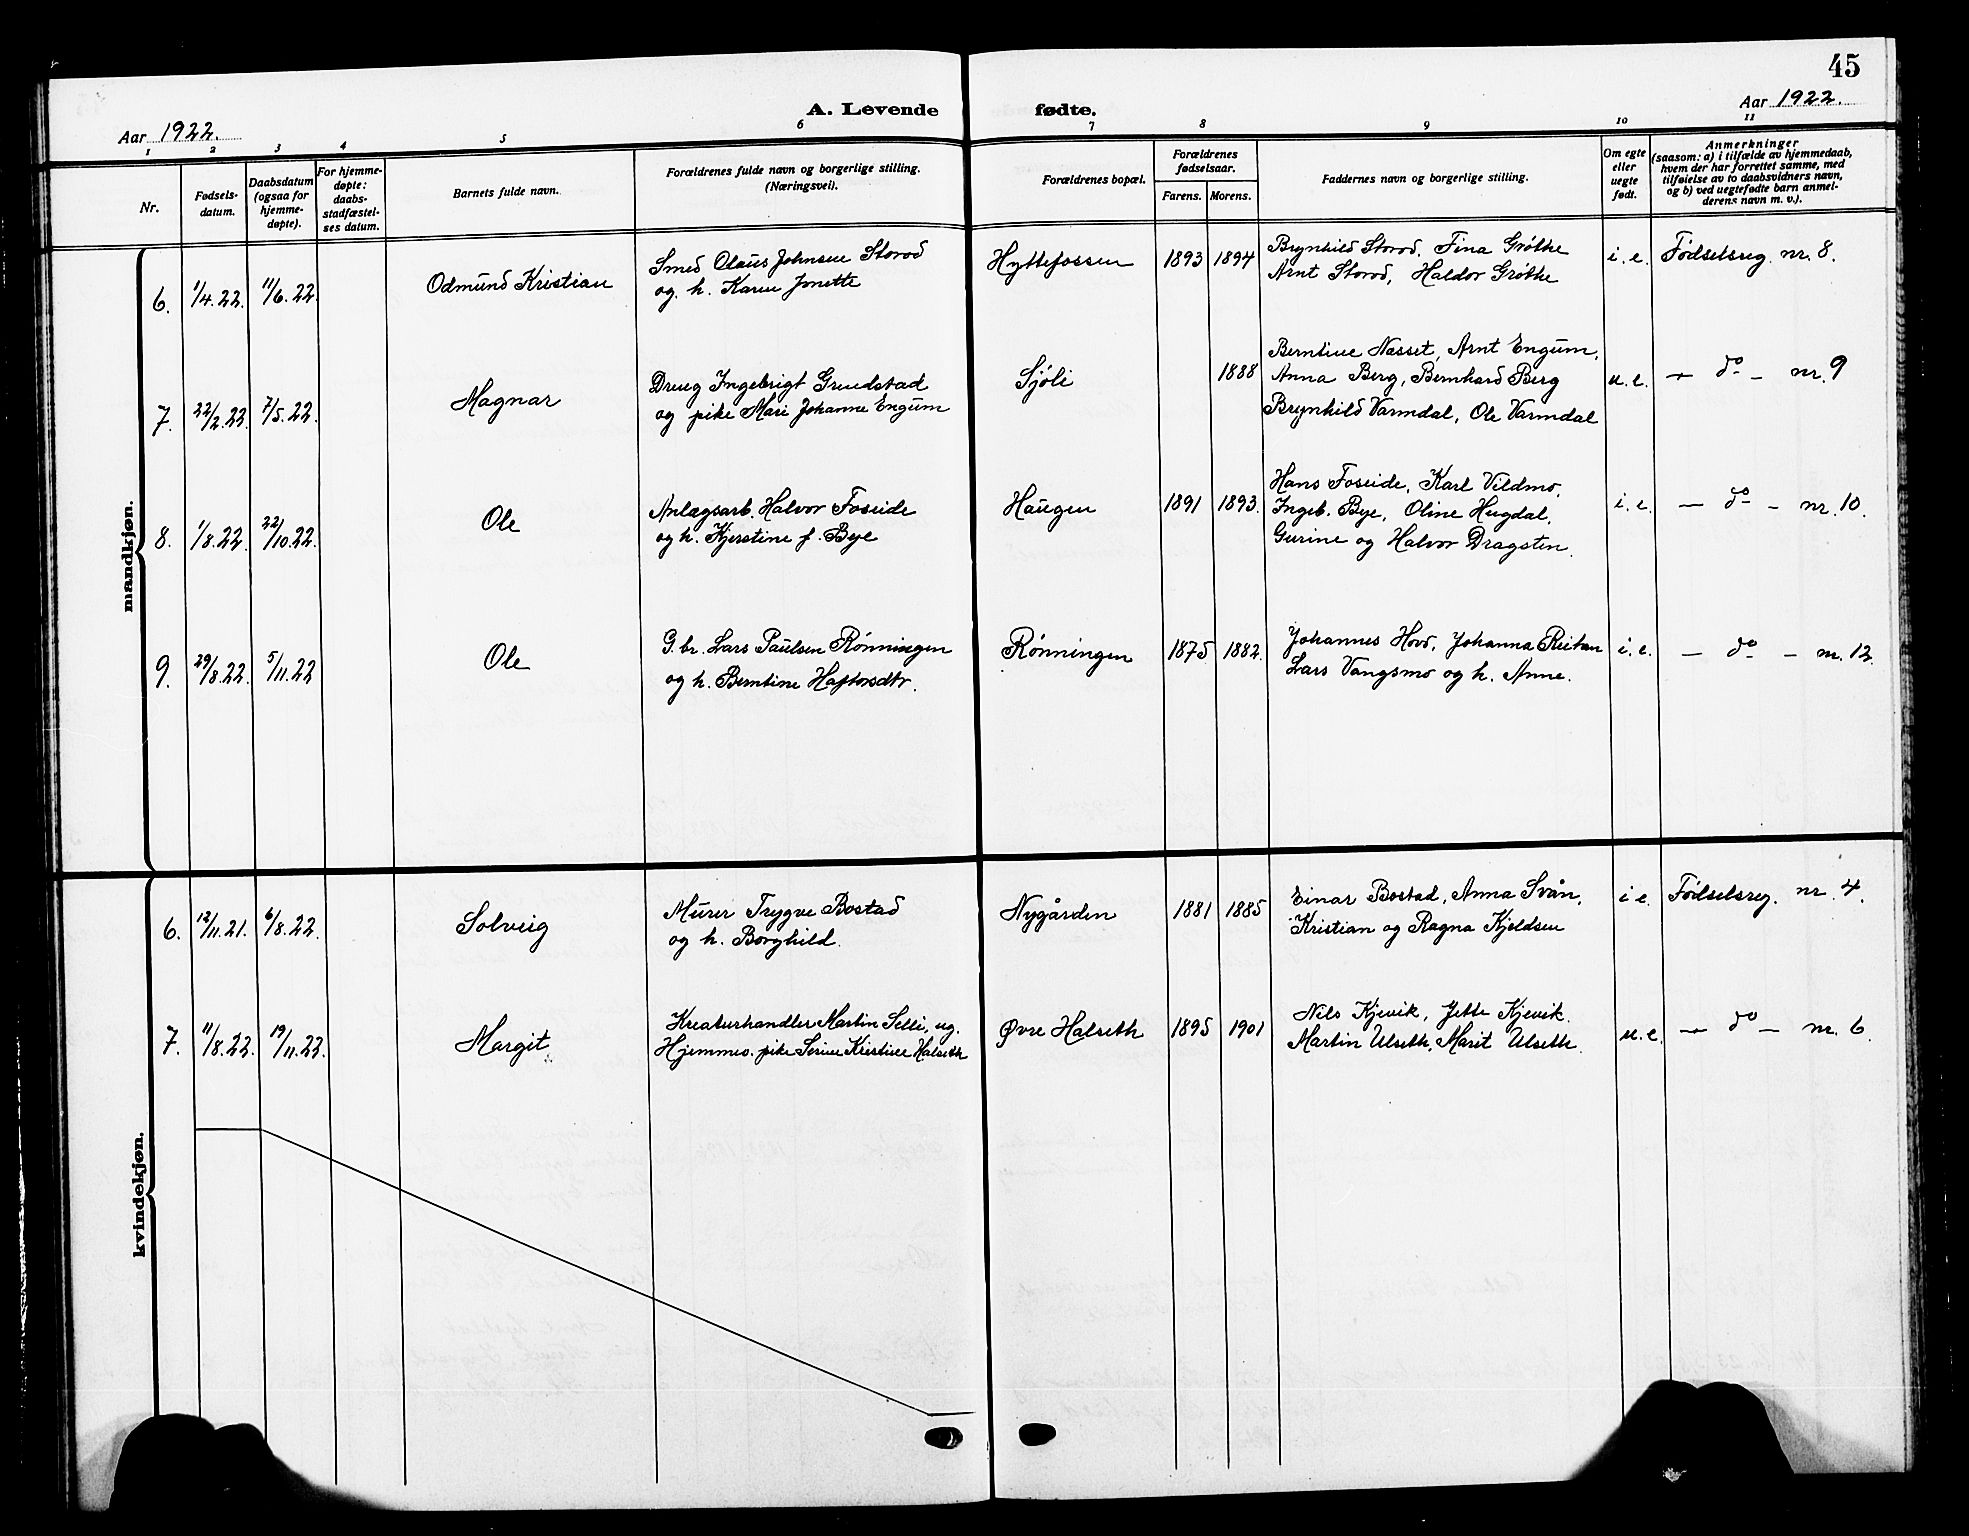 45
A. Levende fødte.
Aar 1922.
Aar 1922.
1 2 3 4 5 6 7 8 9 10 11
Nr.
Fødsels-
datum.
Daabsdatum
(ogsaa for
hjemme-
døpte).
For hjemme-
døpte:
daabs-
stadfæstel-
ses datum.
Barnets fulde navn.
Forældrenes fulde navn og borgerlige stilling.
(Næringsvei).
Forældrenes bopæl.
Forældrenes
fødselsaar.
Farens. Morens.
Faddernes navn og borgerlige stilling.
Om egte
eller
uegte
født.
Anmerkninger
(saasom: a) i tilfælde av hjemmedaab,
hvem der har forrettet samme, med
tilføielse av to daabsvidners navn,
og b) ved uegtefødte barn anmel-
derens navn m. v.).
mandkjøn.
6. 1/4.22. 11/6.22. Odmund Kristian
Smed Claus Johnsen Storød
og h. Karen Jonette
Hyttefossen 1893 1894
Brynhild Storød, Fina Grøtte
Arnt Storød, Haldor Grøtte
i.e. Fødselsreg. nr. 8.
7. 22/2.22. 7/5.22. Magnar
Dreng Ingebrigt Grendstad
og pike Mari Johanne Engum
Sjøli 1888
Berntine Næsset, Arnt Engum,
Anna Berg, Bernhard Berg
Brynhild Varmdal, Ole Varmdal
u.e. — do — nr. 9
8. 1/8.22. 22/10.22. Ole
Anlægsarb. Halvor Foseide
og h. Kjerstine f. Bye
Haugen 1891 1893.
Hans Foseide, Karl Vildmo,
Ingeb. Bye, Oline Hugdal,
Gurine og Halvor Dragsten.
i.e. — do — nr. 10.
9. 29/8.22. 5/11.22 Ole
G.br. Lars Paulsen Rønningen
og h. Berntine Haftorsdtr.
Rønningen 1875 1882.
Johannes Hovd, Johanna Reitan
Lars Vangsmo og h. Anne.
i.e. — do — nr. 12.
kvindekjøn.
6. 12/11.21. 6/8.22. Solveig
Murer Trygve Bostad
og h. Borghild.
Nygården 1881 1885
Einar Bostad, Anna Svån,
Kristian og Ragna Kjeldsen
i e. Fødselsreg. nr. 4.
7. 11/8.22. 19/11.22. Margit
Kreaturhandler Martin Selli, ug.
Hjemmev. pike Serine Kristine Halseth
Øvre Halseth 1895 1901
Nils Kjevik, Jette Kjevik.
Martin Ulseth, Marit Ulseth.
u.e. — do — nr. 6.